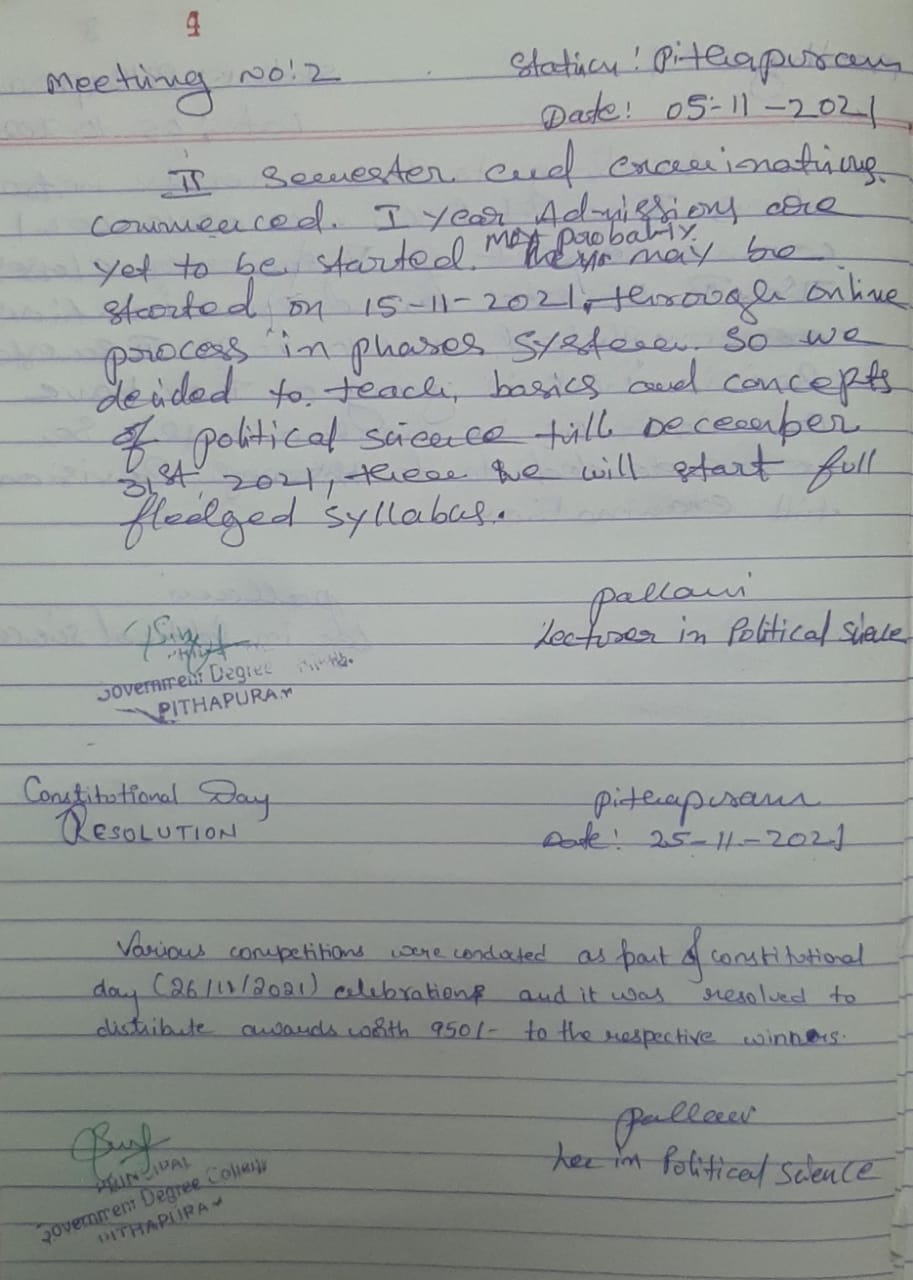 4
Meeting No: 2
Station: Pithapuram
Date: 05-11-2021
II Semester end examinations
commenced. I year Admissions are
yet to be started. most probably
may be
started on 15-11-2021, through online
process in phases system. So we
decided to teach basics and concepts
of political science till December
31st 2021, then we will start full
fledged syllabus.
pallavi
Lecturer in Political Science
Government Degree
PITHAPURAM
Constitutional Day
RESOLUTION
pithapuram
Date: 25-11-2021
Various competitions were conducted as part of constitutional
day (26/11/2021) celebrations and it was resolved to
distribute awards worth 950/- to the respective winners.
pallavi
Lec in Political Science
PRINCIPAL
Government Degree College
PITHAPURAM